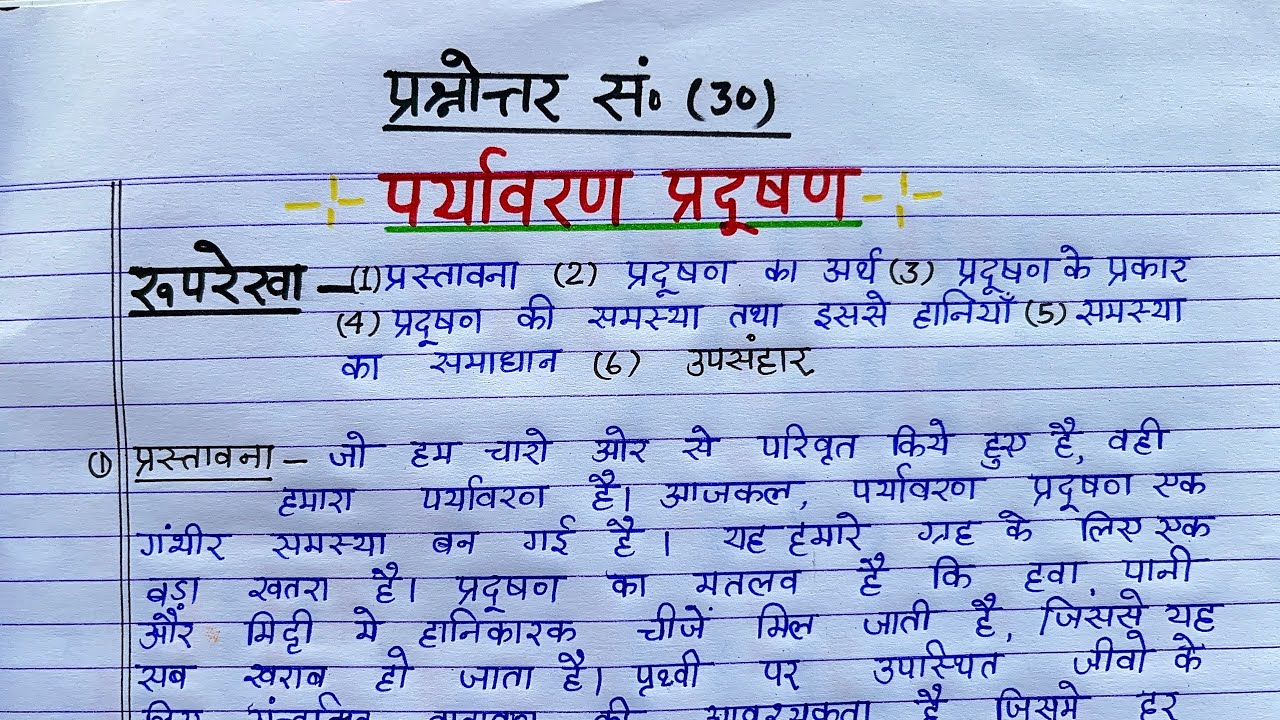 प्रश्नोत्तर सं० (30)
पर्यावरण प्रदूषण
रूपरेखा – (1) प्रस्तावना (2) प्रदूषण का अर्थ (3) प्रदूषण के प्रकार
(4) प्रदूषण की समस्या तथा इससे हानियाँ (5) समस्या
का समाधान (6) उपसंहार
① प्रस्तावना – जो हम चारो ओर से परिवृत किये हुए है, वही
हमारा पर्यावरण है। आजकल, पर्यावरण प्रदूषण एक
गंभीर समस्या बन गई है। यह हमारे ग्रह के लिए एक
बड़ा खतरा है। प्रदूषण का मतलव है कि हवा, पानी
और मिट्टी मे हानिकारक चीजें मिल जाती है, जिससे यह
सब खराब हो जाता है। पृथ्वी पर उपस्थित जीवो के
लिए वातावरण की आवश्यकता है जिसमे हर